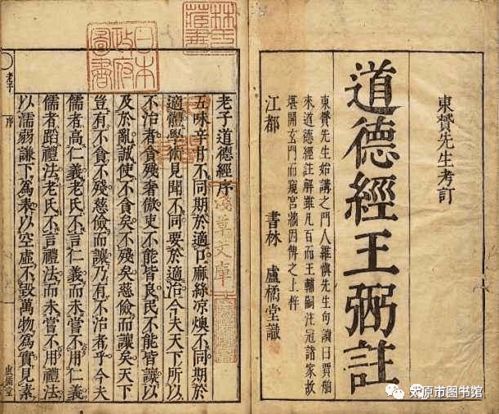 東贇先生考訂
道德經王弼註
東贇先生始講之門人羅慎先生句讀曰賈舶
来道德經註解雖凡百而王輔嗣注冠諸家故
堪開玄門而窺宮牆因傳之上件
江都
書林
盧橘堂識
老子道德經序
五味辛甘不同期於適口麻絲涼燠不同期於
適體學術見聞不同要於適治今夫天下所以
不治者貪殘奢傲吏不能皆良民不能皆讓以
及於亂誠使不貪矣不殘矣慈儉而讓矣天下
豈有不食不殘慈儉而讓乃有不治者乎今夫
儒者高仁義老氏不言仁義而未嘗不用仁義
儒者蹈禮法老氏不言禮法而未嘗不用禮法
以濡弱謙下為表以空虛不毀萬物為實見素
老子
序
日本
政府
圖書
淺草文庫
太原市图书馆